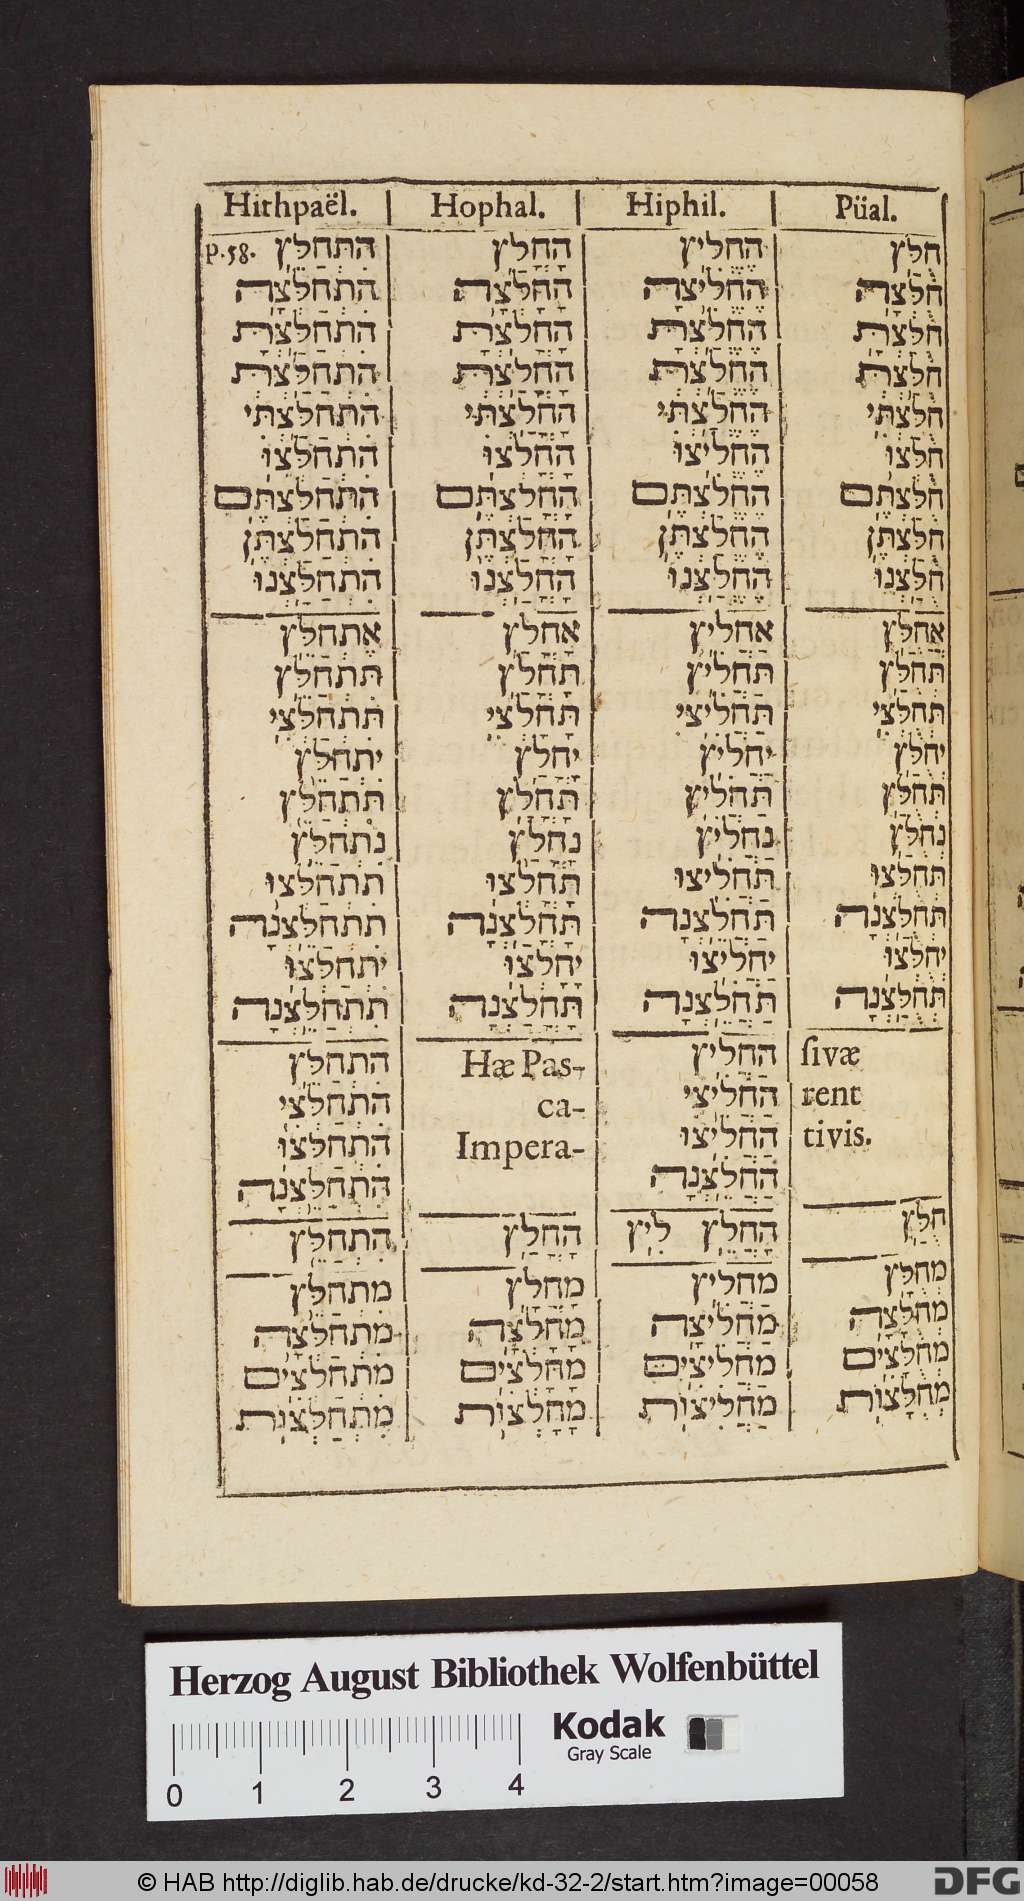 Hithpaël. | Hophal. | Hiphil. | Püal.
p. 58. הִתְחַלֵּץ הָחֳלַץ הֶחֱלִיץ חֻלַּץ
הִתְחַלְּצָה הָחְלְצָה הֶחֱלִיצָה חֻלְּצָה
הִתְחַלַּצְתָּ הָחֳלַצְתָּ הֶחֱלַצְתָּ חֻלַּצְתָּ
הִתְחַלַּצְתְּ הָחֳלַצְתְּ הֶחֱלַצְתְּ חֻלַּצְתְּ
הִתְחַלַּצְתִּי הָחֳלַצְתִּי הֶחֱלַצְתִּי חֻלַּצְתִּי
הִתְחַלְּצוּ הָחְלְצוּ הֶחֱלִיצוּ חֻלְּצוּ
הִתְחַלַּצְתֶּם הָחֳלַצְתֶּם הֶחֱלַצְתֶּם חֻלַּצְתֶּם
הִתְחַלַּצְתֶּן הָחֳלַצְתֶּן הֶחֱלַצְתֶּן חֻלַּצְתֶּן
הִתְחַלַּצְנוּ הָחֳלַצְנוּ הֶחֱלַצְנוּ חֻלַּצְנוּ
אֶתְחַלֵּץ אָחֳלַץ אַחֲלִיץ אֲחֻלַּץ
תִּתְחַלֵּץ תָּחֳלַץ תַּחֲלִיץ תְּחֻלַּץ
תִּתְחַלְּצִי תָּחְלְצִי תַּחֲלִיצִי תְּחֻלְּצִי
יִתְחַלֵּץ יָחֳלַץ יַחֲלִיץ יְחֻלַּץ
תִּתְחַלֵּץ תָּחֳלַץ תַּחֲלִיץ תְּחֻלַּץ
נִתְחַלֵּץ נָחֳלַץ נַחֲלִיץ נְחֻלַּץ
תִּתְחַלְּצוּ תָּחְלְצוּ תַּחֲלִיצוּ תְּחֻלְּצוּ
תִּתְחַלֵּצְנָה תָּחֳלַצְנָה תַּחֲלֵצְנָה תְּחֻלַּצְנָה
יִתְחַלְּצוּ יָחְלְצוּ יַחֲלִיצוּ יְחֻלְּצוּ
תִּתְחַלֵּצְנָה תָּחֳלַצְנָה תַּחֲלֵצְנָה תְּחֻלַּצְנָה
הִתְחַלֵּץ Hæ Pas- הַחֲלִיץ ſivæ
הִתְחַלְּצִי ca- הַחֲלִיצִי rent
הִתְחַלְּצוּ Impera- הַחֲלִיצוּ tivis.
הִתְחַלֵּצְנָה הַחֲלֵצְנָה
הִתְחַלֵּץ הָחֳלַץ הַחֲלֵץ לִיץ חֻלַּץ
מִתְחַלֵּץ מָחֳלָץ מַחֲלִיץ מְחֻלָּץ
מִתְחַלְּצָה מָחֳלָצָה מַחֲלִיצָה מְחֻלָּצָה
מִתְחַלְּצִים מָחֳלָצִים מַחֲלִיצִים מְחֻלָּצִים
מִתְחַלְּצוֹת מָחֳלָצוֹת מַחֲלִיצוֹת מְחֻלָּצוֹת
Herzog August Bibliothek Wolfenbüttel
Kodak
Gray Scale
0 1 2 3 4
© HAB http://diglib.hab.de/drucke/kd-32-2/start.htm?image=00058
DFG